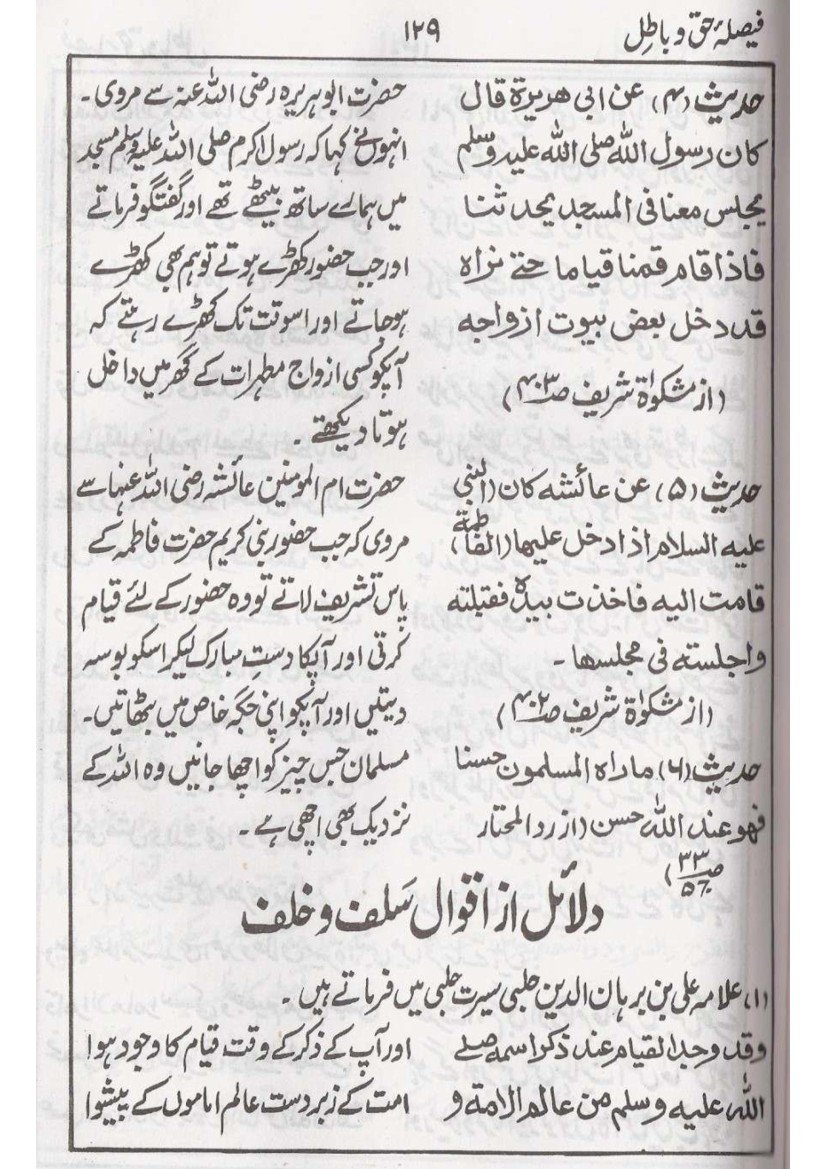 فیصلۂ حق و باطل
۱۲۹
حدیث (۴) عن ابی ھریرۃ قال
کان رسول اللہ صلی اللہ علیہ وسلم
یجلس معنا فی المسجد یحدثنا
فاذا قام قمنا قیاما حتے نراہ
قد دخل بعض بیوت ازواجہ
(از مشکوٰۃ شریف صـ۴۰۳)
حضرت ابوہریرہ رضی اللہ عنہ سے مروی۔
انہوں نے کہا کہ رسول اکرم صلی اللہ علیہ وسلم مسجد
میں ہمارے ساتھ بیٹھے تھے اور گفتگو فرماتے
اور جب حضور کھڑے ہوتے تو ہم بھی کھڑے
ہو جاتے اور اسوقت تک کھڑے رہتے کہ
آپکو کسی ازواج مطہرات کے گھر میں داخل
ہوتا دیکھتے ۔
حدیث (۵) عن عائشہ کان (النبی
علیہ السلام اذا دخل علیھا (الفاطمۃ)
قامت الیہ فاخذت بیدہ فقبلتہ
واجلستہ فی مجلسھا۔
(از مشکوٰۃ شریف صـ۴۰۲)
حضرت ام المومنین عائشہ رضی اللہ عنہا سے
مروی کہ جب حضور نبی کریم حضرت فاطمہ کے
پاس تشریف لاتے تو وہ حضور کے لئے قیام
کرتی اور آپکا دستِ مبارک لیکر اسکو بوسہ
دیتیں اور آپکو اپنی جگہ خاص میں بٹھاتیں۔
حدیث (۶) ماراہ المسلمون حسنا
فھو عند اللہ حسن (از ردالمحتار
مسلمان جس چیز کو اچھا جانیں وہ اللہ کے
نزدیک بھی اچھی ہے۔
دلائل از اقوال سَلف و خلف
(۱) علامہ علی بن برہان الدین حلبی سیرت حلبی میں فرماتے ہیں ۔
وقد وجد القیام عند ذکر اسمہ صلے
اللہ علیہ وسلم من عالم الامۃ و
اور آپ کے ذکر کے وقت قیام کا وجود ہوا
امت کے زبردست عالم اماموں کے پیشوا